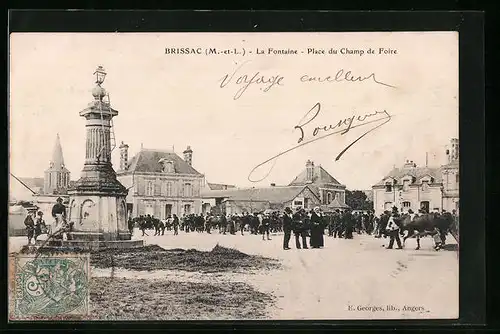 BRISSAC (M.-et-L.) - La Fontaine - Place du Champ de Foire
Voyage excellent
E. Georges, lib., Angers